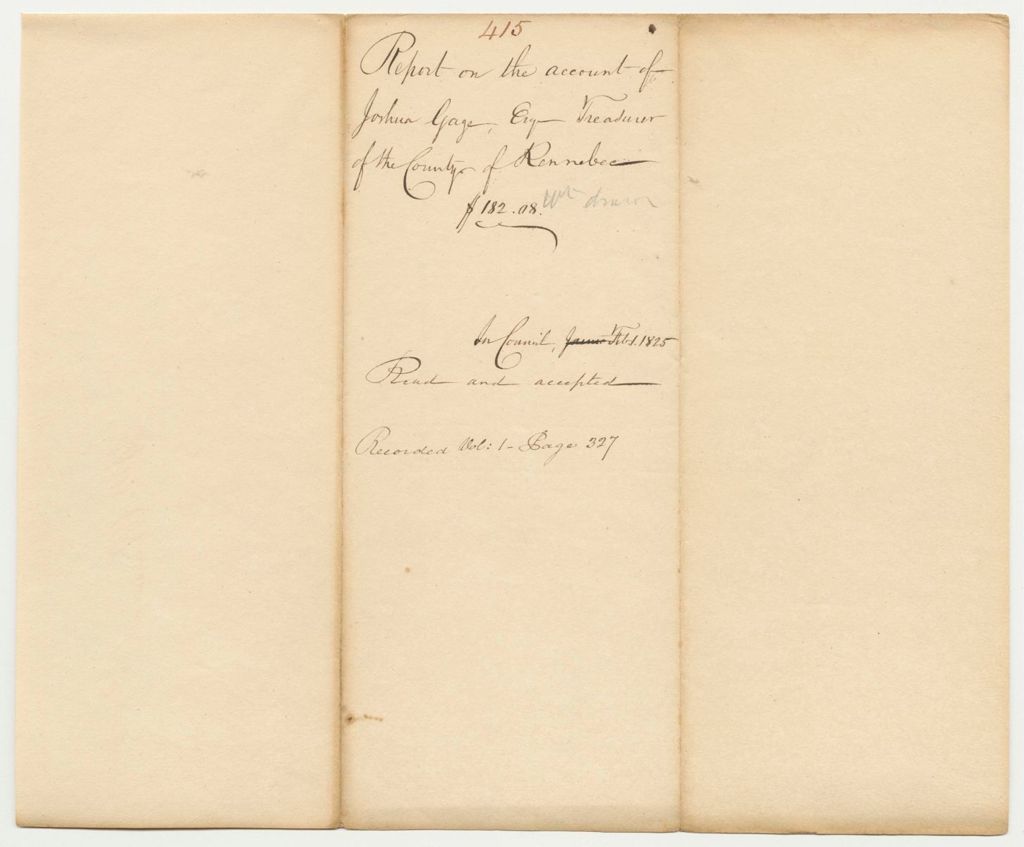 415
Report on the account of
Joshua Gage, Esq Treasurer
of the County of Kennebec
$182.08. Wt drawn
In Council, Feb 1. 1825
Read and accepted
Recorded Vol: 1 - Page 327